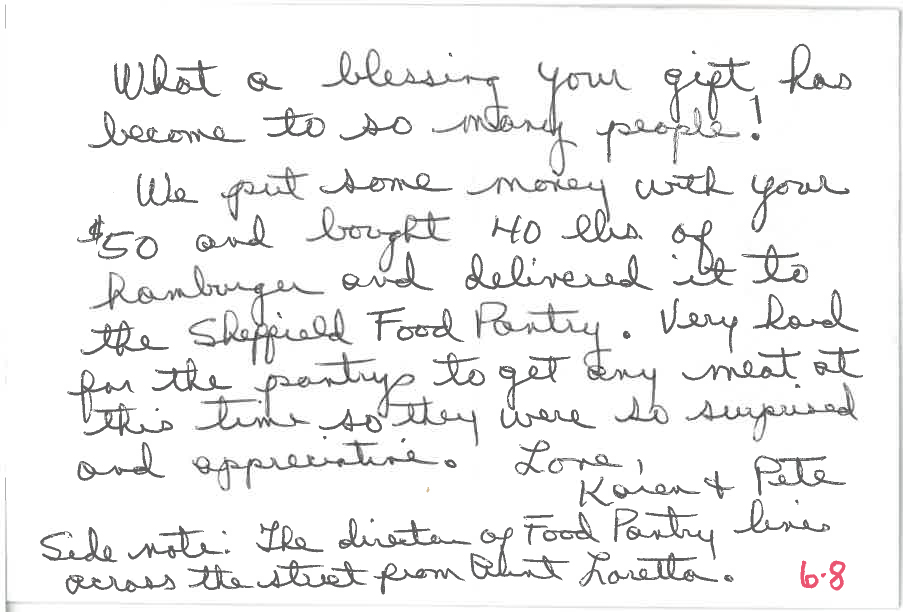 What a blessing your gift has
become to so many people!
We put some money with your
$50 and bought 40 lbs. of
hamburger and delivered it to
the Sheffield Food Pantry. Very hard
for the pantrys to get any meat at
this time so they were so surprised
and appreciative. Love,
Karen & Pete
Side note: The director of Food Pantry lives
across the street from Aunt Loretta.
6-8